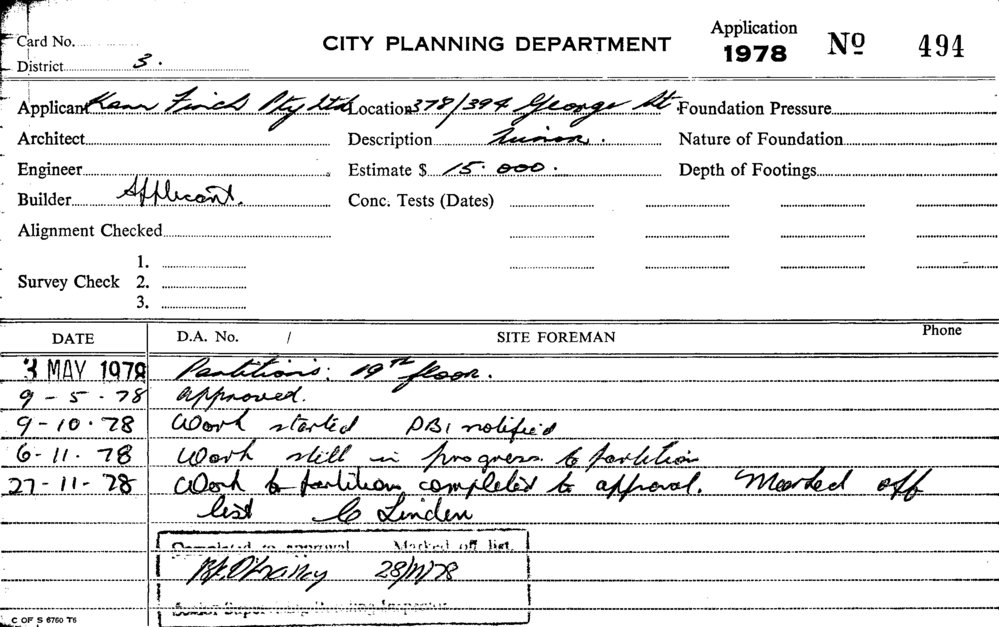 Card No.
District 3.
CITY PLANNING DEPARTMENT
Application
1978 Nº 494
Applicant Kann Finch Pty Ltd Location 378/394 George St. Foundation Pressure
Architect Description Minor. Nature of Foundation
Engineer Estimate $ 15.000. Depth of Footings
Builder Applicant. Conc. Tests (Dates)
Alignment Checked
1.
Survey Check 2.
3.
DATE D.A. No. / SITE FOREMAN Phone
3 MAY 1978 Partitions: 19th floor.
9-5-78 approved.
9-10-78 Work started DBI notified
6-11-78 Work still in progress to partition
27-11-78 Work to partition completed to approval. Marked off
list C Linden
Completed to approval Marked off list.
28/11/78
Senior Supervising Building Inspector
C OF S 6760 T6